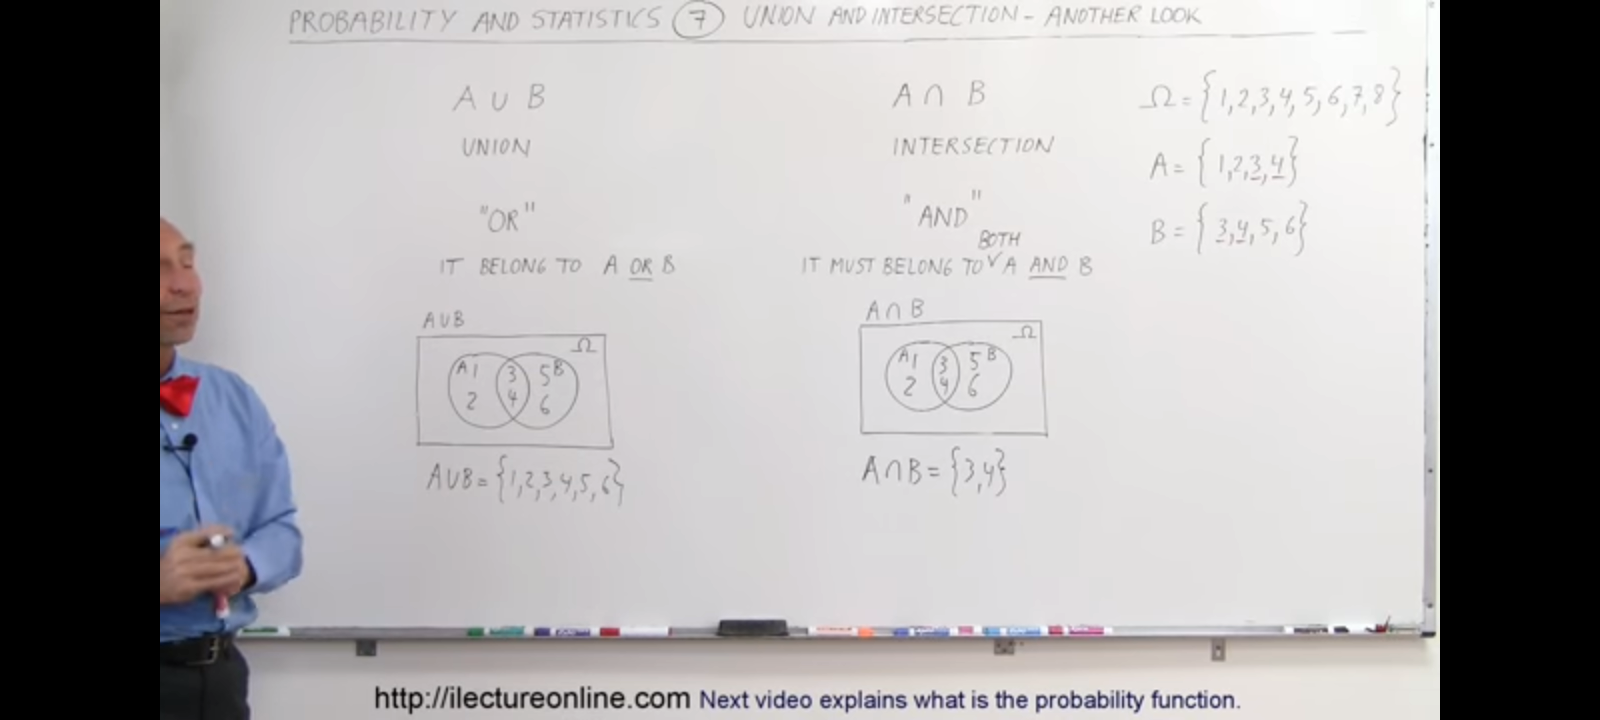 PROBABILITY AND STATISTICS 7 UNION AND INTERSECTION - ANOTHER LOOK
A ∪ B
UNION
"OR"
IT BELONG TO A OR B
A∪B
Ω
A 1 3 5 B
2 4 6
A∪B = {1,2,3,4,5,6}
A ∩ B
INTERSECTION
"AND"
BOTH
IT MUST BELONG TO ∨ A AND B
A∩B
Ω
A 1 3 5 B
2 4 6
A∩B = {3,4}
Ω = {1,2,3,4,5,6,7,8}
A = {1,2,3,4}
B = {3,4,5,6}
http://ilectureonline.com Next video explains what is the probability function.